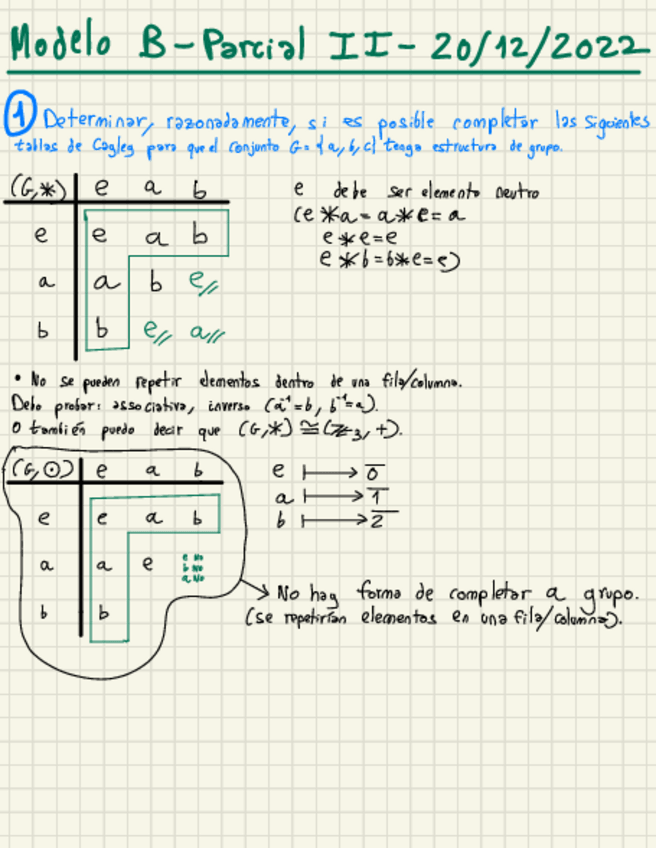 Modelo B - Parcial II - 20/12/2022
1 Determinar, razonadamente, si es posible completar las siguientes
tablas de Cayley para que el conjunto G = {a, b, c} tenga estructura de grupo.
(G,*) e a b
e e a b
a a b e
b b e a
e debe ser elemento neutro
(e*a = a*e = a
e*e = e
e*b = b*e = e)
• No se pueden repetir elementos dentro de una fila/columna.
Debo probar: associativa, inverso (a⁻¹=b, b⁻¹=a).
O también puedo decir que (G,*) ≅ (ℤ₃, +).
(G,⊙) e a b
e e a b
a a e
e No
b No
a No
b b
e ↦ 0̅
a ↦ 1̅
b ↦ 2̅
No hay forma de completar a grupo.
(se repetirían elementos en una fila/columna).